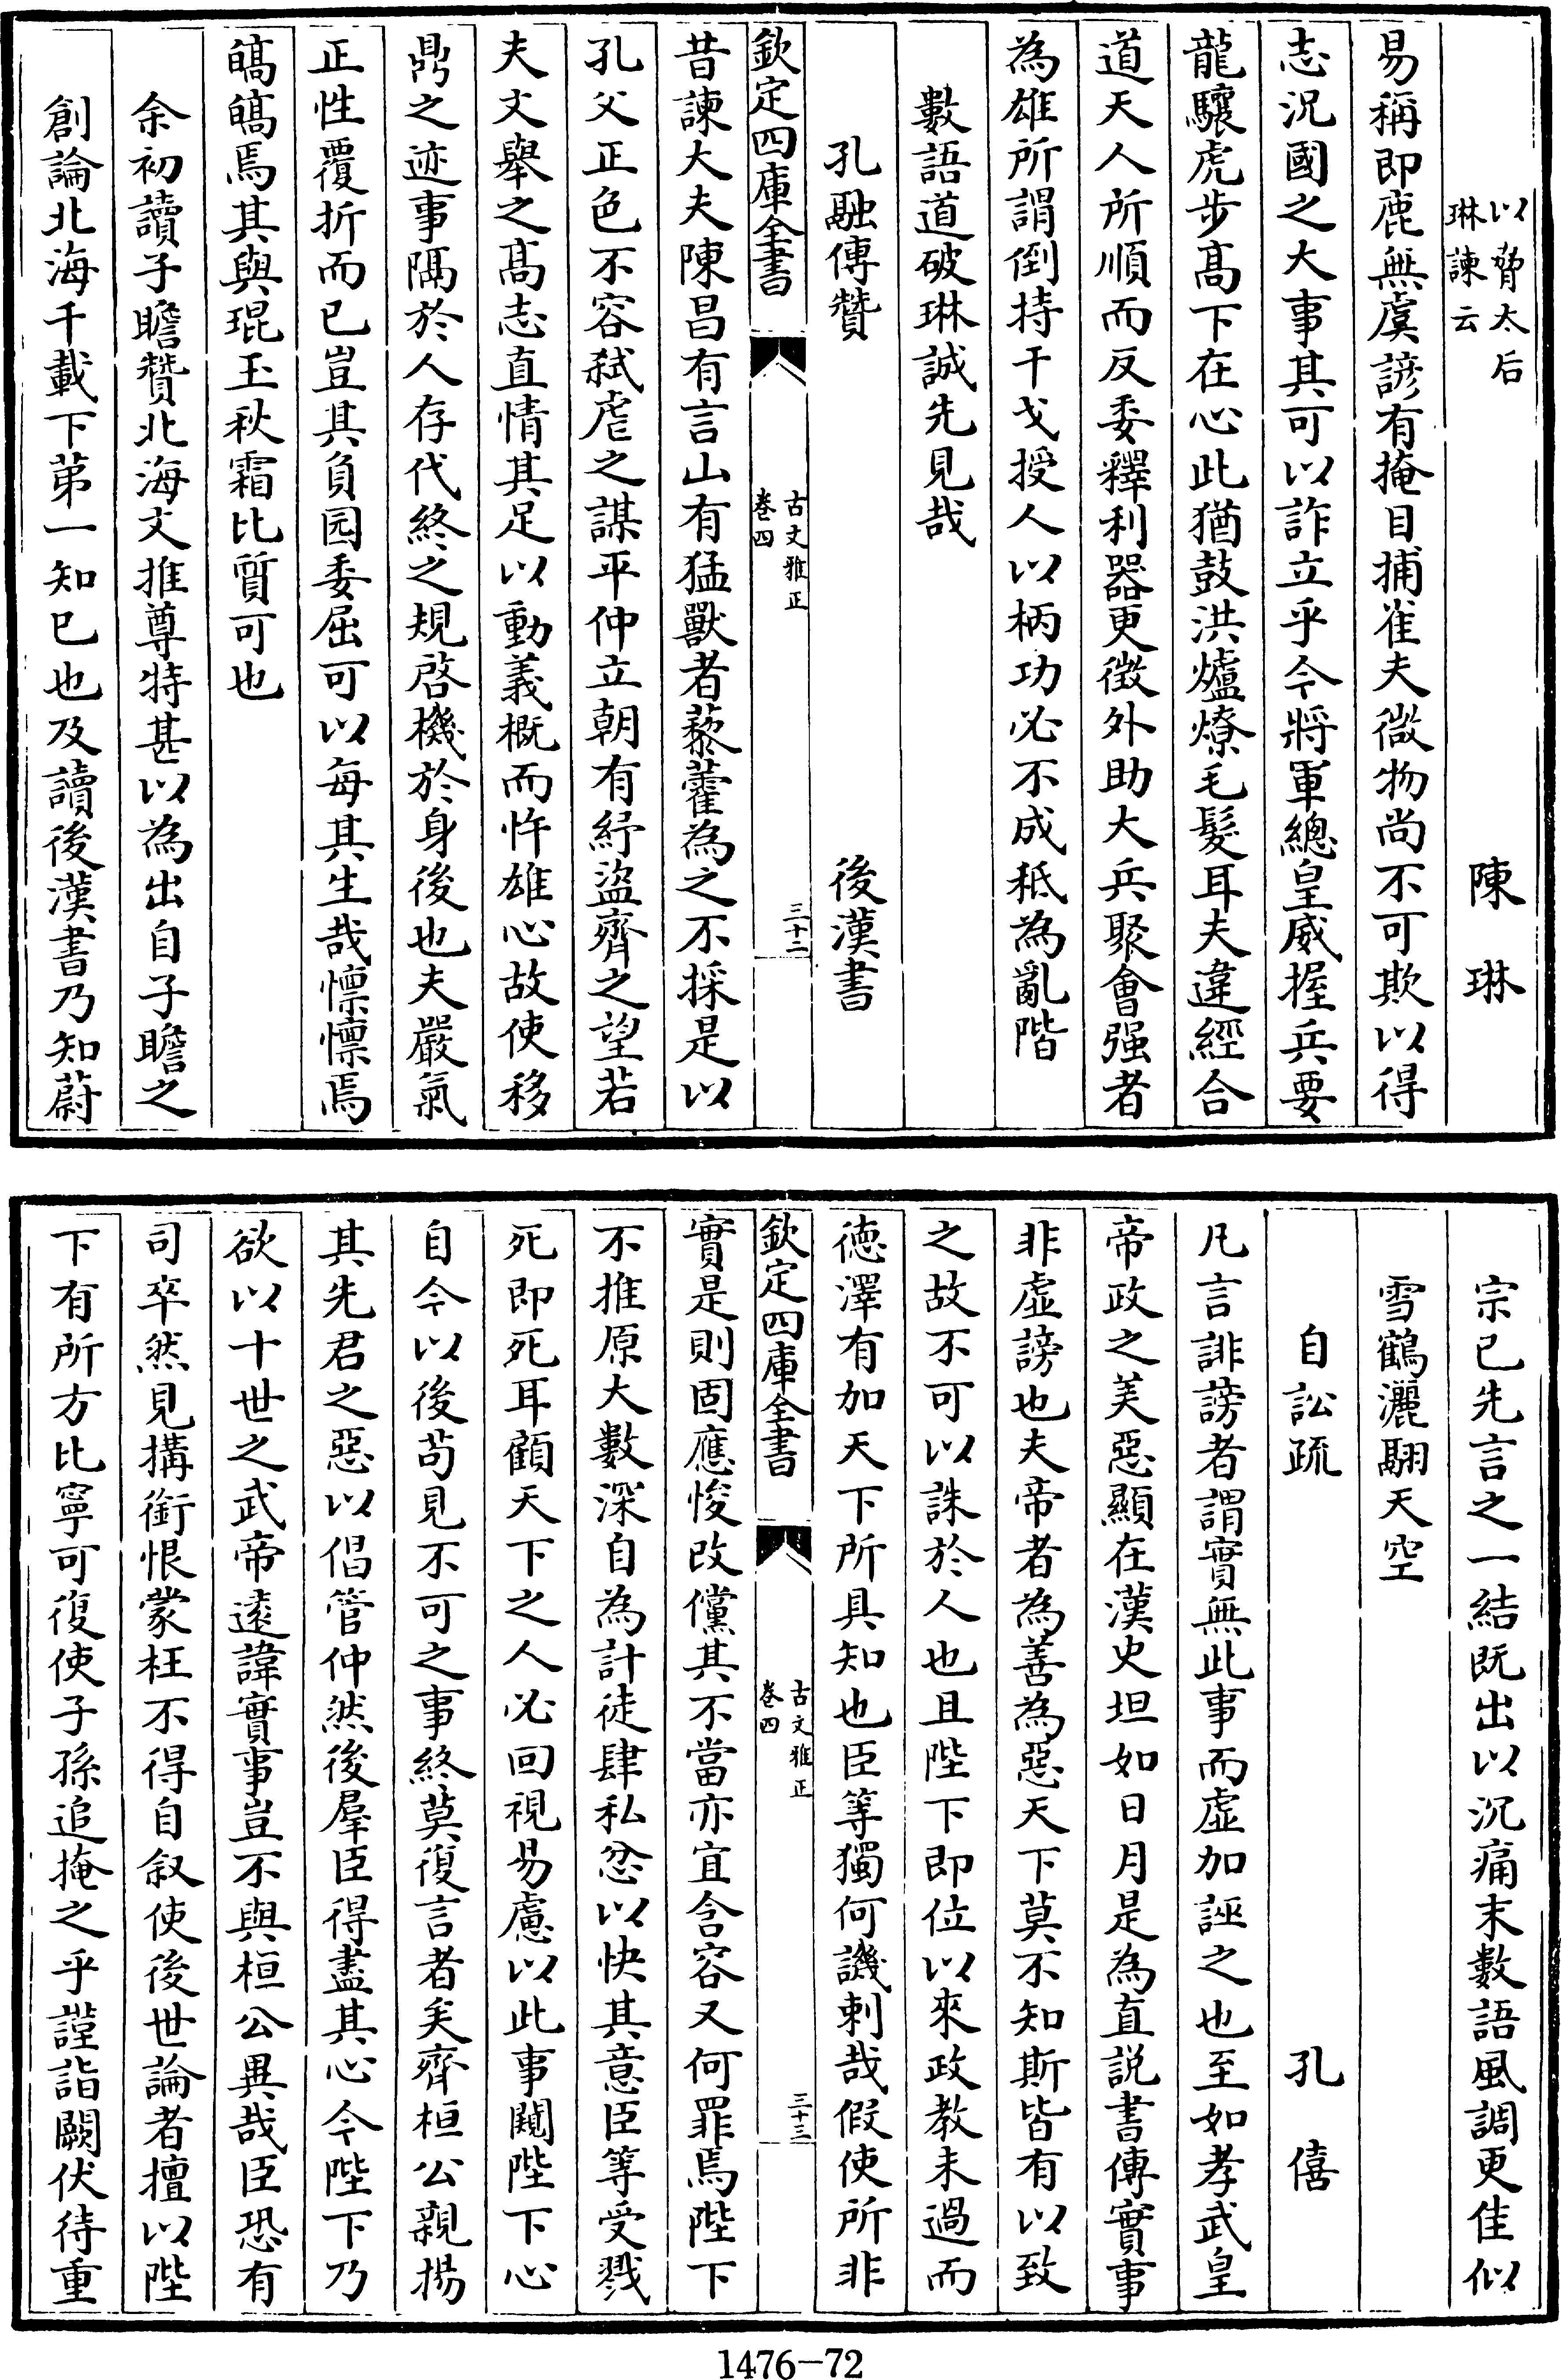 以脅太后
琳諫云
陳琳
易稱即鹿無虞諺有掩目捕雀夫微物尚不可欺以得
志況國之大事其可以詐立乎今將軍總皇威握兵要
龍驤虎步髙下在心此猶鼓洪爐燎毛髮耳夫違經合
道天人所順而反委釋利器更徴外助大兵聚會强者
為雄所謂倒持干戈授人以柄功必不成秪為亂階
數語道破琳誠先見哉
孔融傳贊
後漢書
欽定四庫全書
古文雅正
卷四
三十二
昔諫大夫陳昌有言山有猛獸者藜藿為之不採是以
孔父正色不容弑虐之謀平仲立朝有紓盜齊之望若
夫文舉之髙志直情其足以動義概而忤雄心故使移
鼎之迹事隔於人存代終之規啓機於身後也夫嚴氣
正性覆折而已豈其負园委屈可以每其生哉懔懔焉
皜皜焉其與琨玉秋霜比質可也
余初讀子瞻贊北海文推尊特甚以為出自子瞻之
創論北海千載下苐一知已也及讀後漢書乃知蔚
宗已先言之一結既出以沉痛末數語風調更佳似
雪鶴灑翮天空
自訟疏
孔僖
凡言誹謗者謂實無此事而虛加誣之也至如孝武皇
帝政之美惡顯在漢史坦如日月是為直説書傳實事
非虛謗也夫帝者為善為惡天下莫不知斯皆有以致
之故不可以誅於人也且陛下即位以來政教未過而
徳澤有加天下所具知也臣等獨何譏刺哉假使所非
欽定四庫全書
古文雅正
卷四
三十三
實是則固應悛改儻其不當亦宜含容又何罪焉陛下
不推原大數深自為計徒肆私忿以快其意臣等受戮
死即死耳顧天下之人必回視易慮以此事闚陛下心
自今以後苟見不可之事終莫復言者矣齊桓公親揚
其先君之惡以倡管仲然後羣臣得盡其心今陛下乃
欲以十世之武帝遠諱實事豈不與桓公異哉臣恐有
司卒然見搆銜恨蒙枉不得自叙使後世論者擅以陛
下有所方比寧可復使子孫追掩之乎謹詣闕伏待重
1476-72